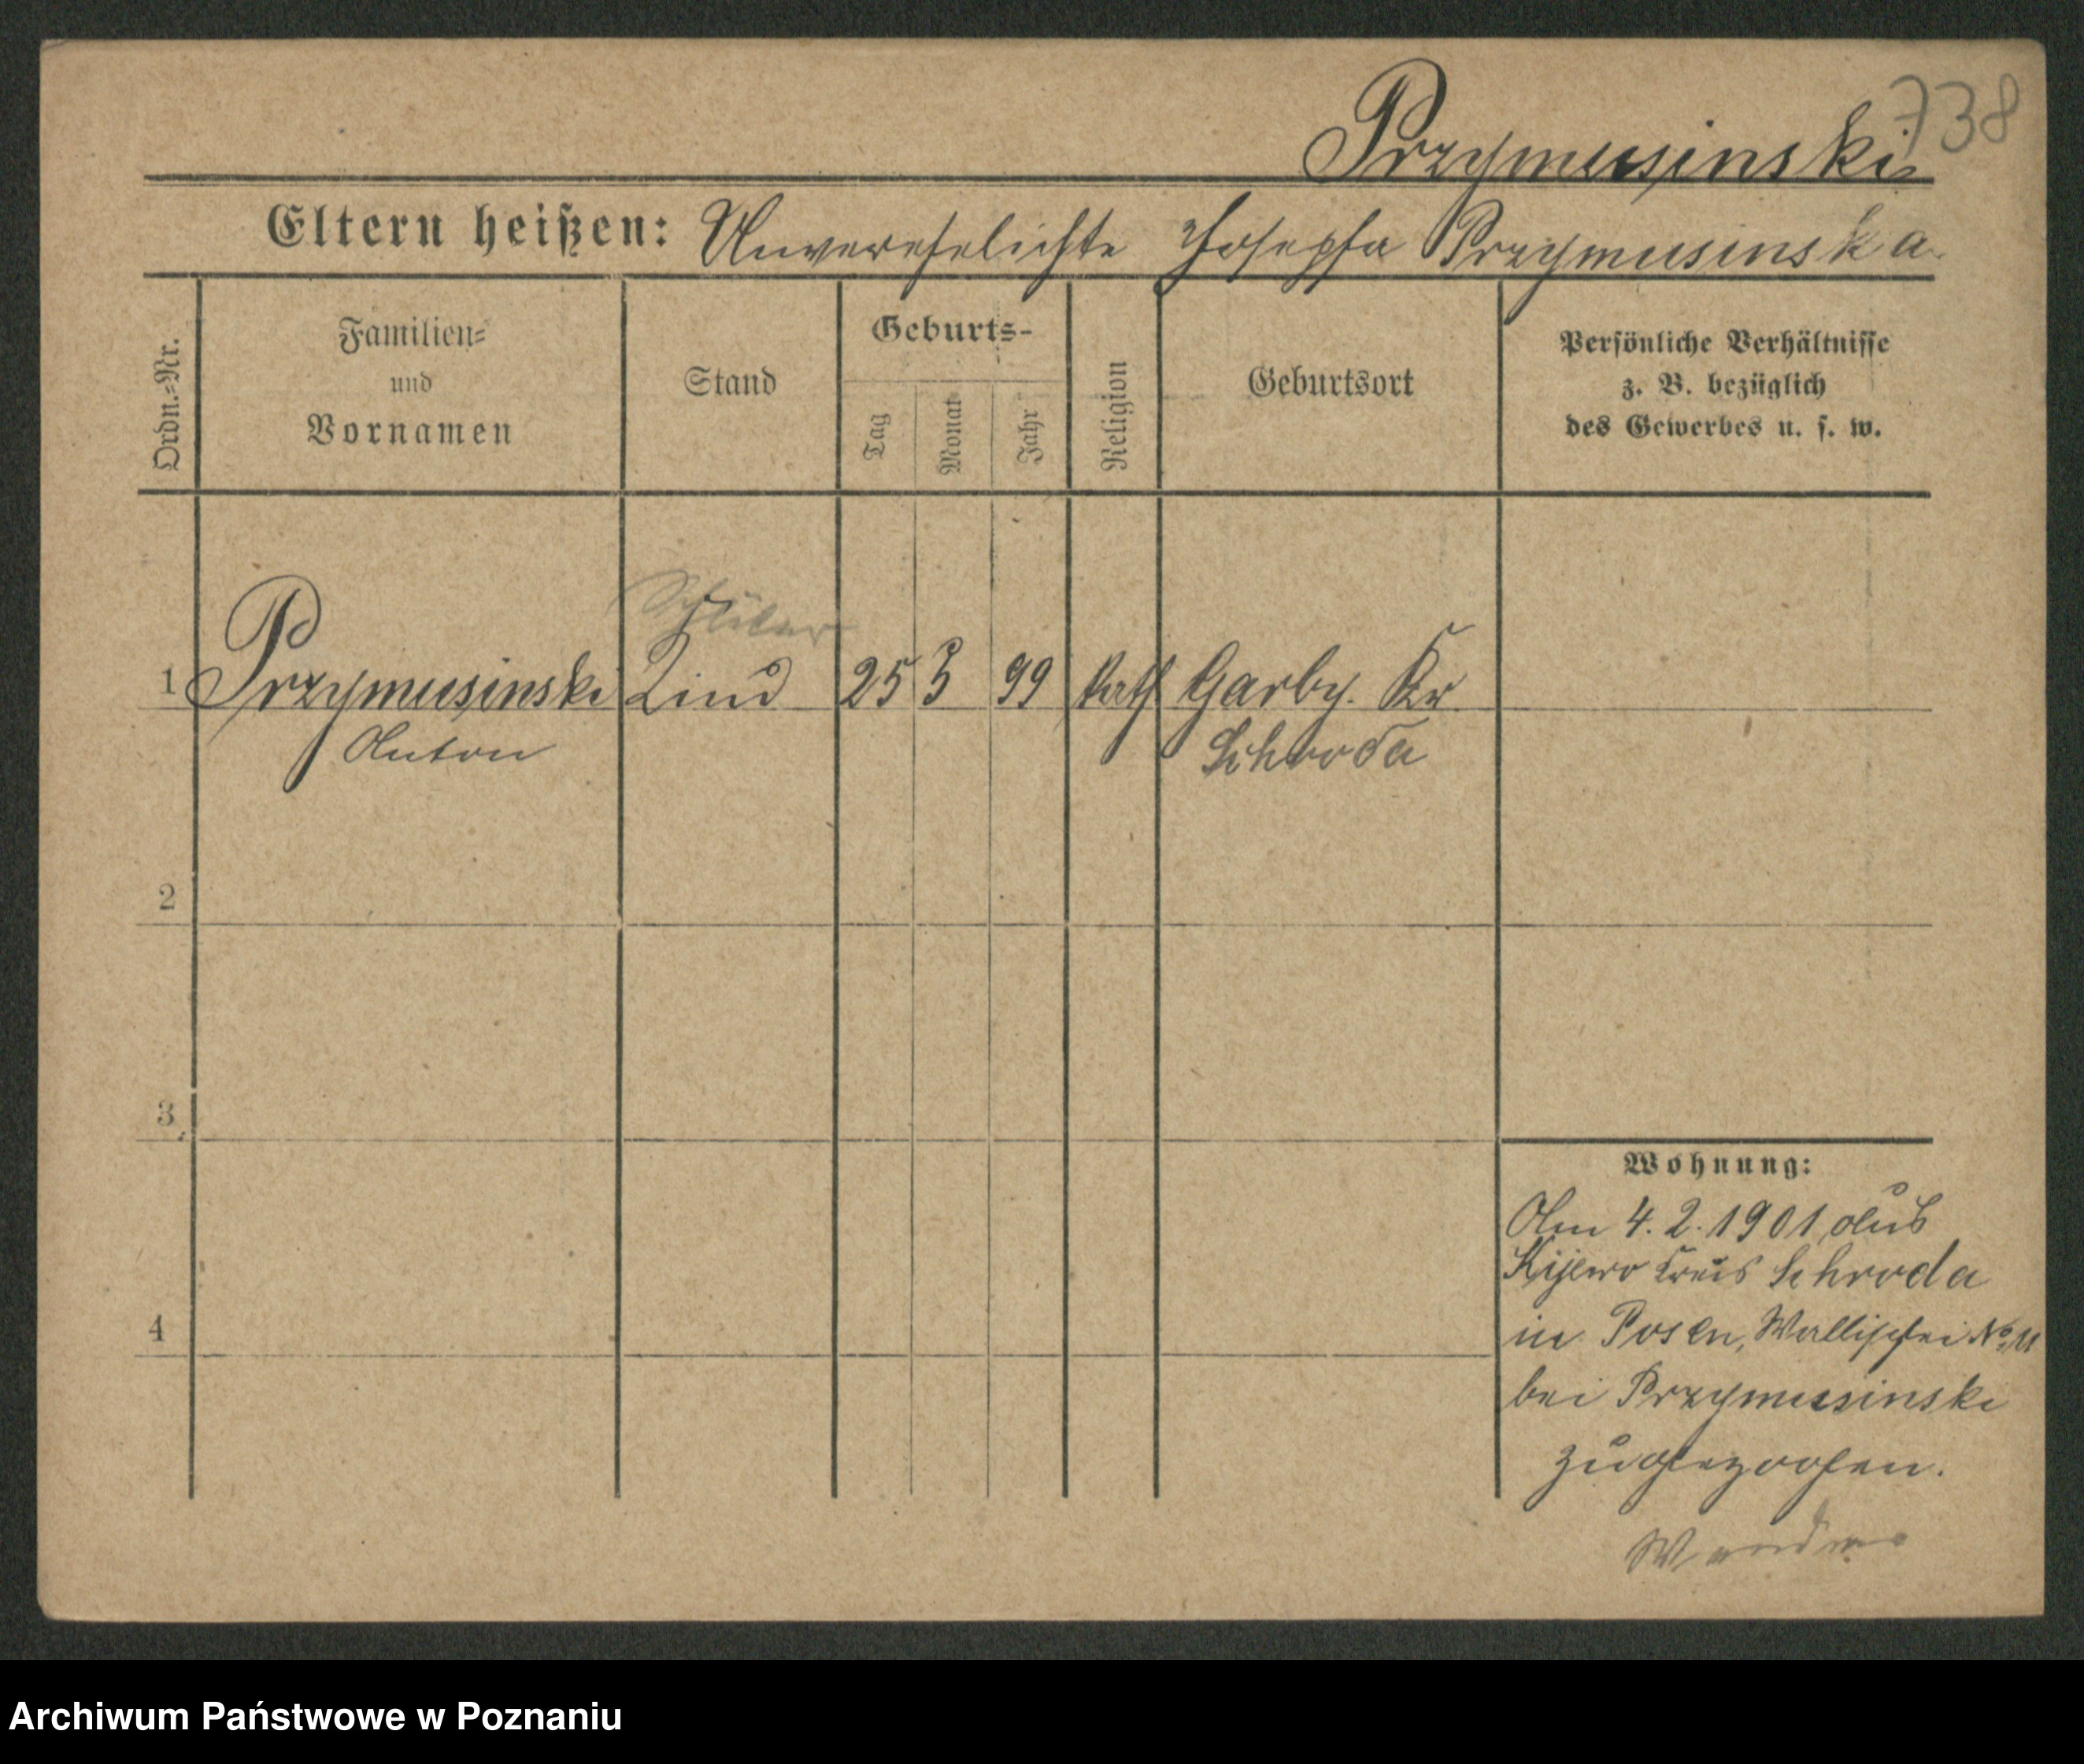 738
Przymusinski
Eltern heißen: Unverehelichte Josepha Przymusinska
Ordn.-Nr.
Familien-
und
Vornamen
Stand
Geburts-
Tag
Monat
Jahr
Religion
Geburtsort
Persönliche Verhältnisse
z. B. bezüglich
des Gewerbes u. s. w.
Schüler
1 Przymusinski Kind 25 3 99 kath Garby. Kr.
Anton Schroda
2
3
4
Wohnung:
Am 4. 2. 1901 aus
Kijewo Kreis Schroda
in Posen, Wallischei No 11
bei Przymusinski
zugezogen.
Archiwum Państwowe w Poznaniu